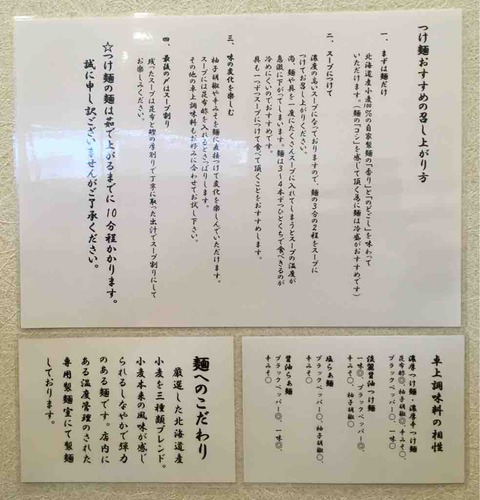 つけ麺おすすめの召し上がり方
一、まずは麺だけ
北海道産小麦100%の自家製麺の「香り」と「のどごし」を味わって
いただけます。（麺の「コシ」を感じて頂く為に麺は冷盛がおすすめです）
二、スープにつけて
濃度の高いスープになっておりますので、麺の3分の2程をスープに
つけてお召し上がりください。
尚、麺や具を一度にたくさんスープに入れてしまうとスープの温度が
急激に下がってしまいます。麺は3〜4本ずつひとくちで食べきるのが
冷めにくいのでおすすめです。
具も一つずつスープにつけて食べて頂くことをおすすめします。
三、味の変化を楽しむ
柚子胡椒や辛みそを麺に直接つけて変化を楽しんでいただけます。
スープには昆布酢を入れるとさっぱりします。
その他の卓上調味料もお好みに合わせてお試し下さい。
四、最後の〆はスープ割り
残ったスープは昆布と鰹の厚削りで丁寧に取った出汁でスープ割りにして
お楽しみください。
☆つけ麺の麺は茹で上がるまでに10分程かかります。
誠に申し訳ございませんがご了承ください。
卓上調味料の相性
濃厚つけ麺・濃厚辛つけ麺
昆布酢◎、柚子胡椒◎、辛みそ◯、
ブラックペッパー◯、一味◯
淡麗醤油つけ麺
一味◎、ブラックペッパー◯、柚子胡椒◯、
辛みそ◯
塩らぁ麺
ブラックペッパー◯、柚子胡椒◯
辛みそ◯
醤油らぁ麺
ブラックペッパー◎、一味◯、
辛みそ◯
麺へのこだわり
厳選した北海道産
小麦を三種類ブレンド。
小麦本来の風味が感じ
られるしなやかで弾力
のある麺です。店内に
ある温度管理のされた
専用製麺室にて製麺
しております。